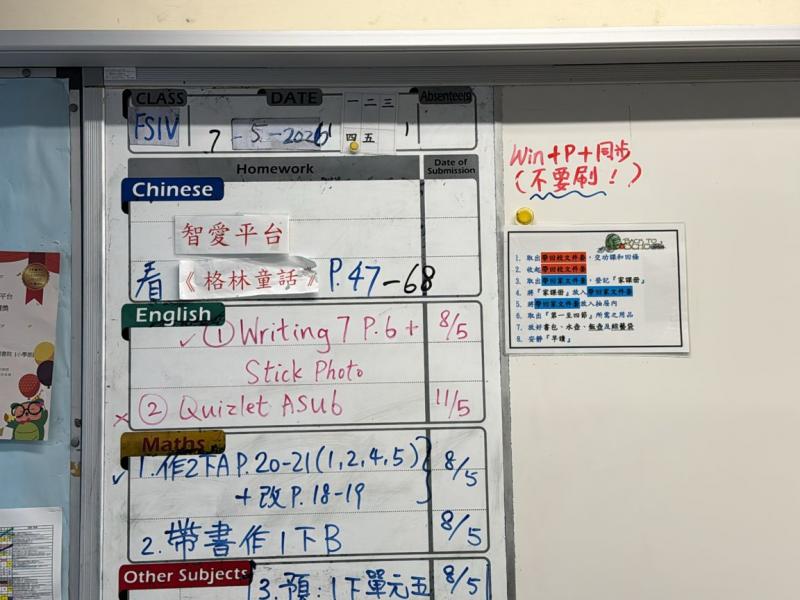 CLASS DATE Absentee(s)
FSIV 7 - 5 - 2026 一 二 三 四 五 1
Homework Date of Submission
Chinese
智愛平台
看《格林童話》P.47-68
English
✓ ① Writing 7 P.6 + 8/5
Stick Photo
× ② Quizlet ASU6 11/5
Maths
✓ 1. 作2下A P.20-21(1,2,4,5) 8/5
+ 改 P.18-19
2. 帶書作1下B 8/5
Other Subjects
3. 預:1下單元五 8/5
Win + P + 同步
(不要刷!)
BACK TO SCHOOL
1. 取出帶回校文件套,交功課和回條
2. 收起帶回校文件套
3. 取出帶回家文件套,登記『家課冊』
4. 將『家課冊』放入帶回家文件套
5. 將帶回家文件套放入抽屜內
6. 取出『第一至四節』所需之用品
7. 放好書包、水壺、飯壺及餐袋
8. 安靜『早讀』